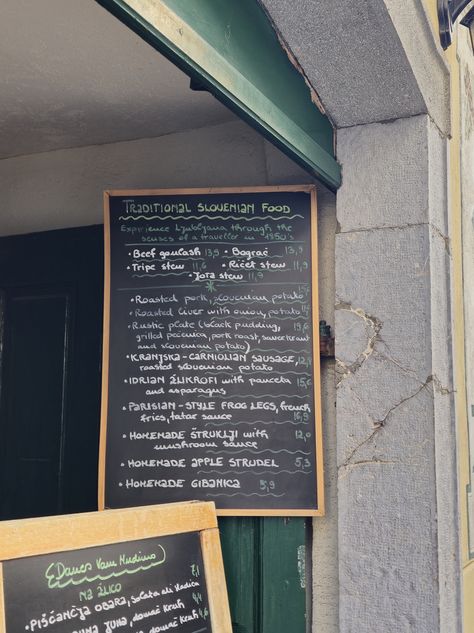 TRADITIONAL SLOVENIAN FOOD
Expirience Ljubljana through the
senses of a traveller in 1950's
• Beef goulash 13,9 • Bograč 13,9
• Tripe stew 11,6 • Ričet stew 11,9
• Jota stew 11,9
• Roasted pork, slovenian potato
• Roasted liver with onion, potato
• Rustic plate (black pudding,
grilled pečenica, pork roast, sauerkraut
and slovenian potato)
• KRANJSKA - CARNIOLIAN SAUSAGE,
roasted slovenian potato
• IDRIAN ŽLIKROFI with panceta
and asparagus
• PARISIAN - STYLE FROG LEGS, french
fries, tatar sauce 16,9
• HOMEMADE ŠTRUKLJI with 12,0
mushroom sauce
• HOMEMADE APPLE STRUDEL 5,3
• HOMEMADE GIBANICA 5,9
(Danes Vam Nudimo)
NA ŽLICO
PIŠČANČJA OBARA, Solata ali sladica
JUHA, domač kruh 4,4
domač kruh